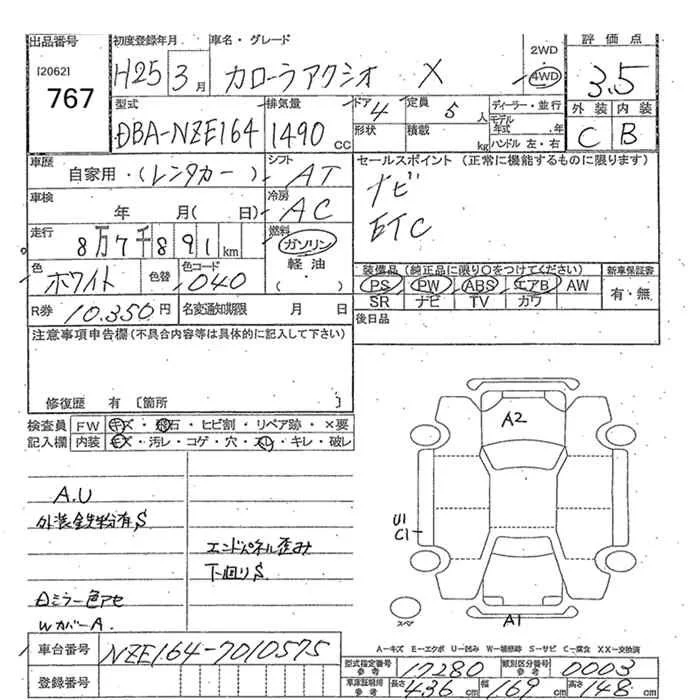 出品番号
[2062]
767
初度登録年月
H25 3月
車名・グレード
カローラアクシオ X
2WD
4WD
評価点
3.5
外装 内装
C B
型式
DBA-NZE164
排気量
1490 cc
ドア 4
定員 5 人
形状
積載 kg
ディーラー・並行
モデル年式 . 年
ハンドル 左・右
車歴
自家用・(レンタカー)
シフト
AT
車検
年 月( 日)
冷房
AC
走行
8万7千891km
燃料
ガソリン
軽油
( ・ )
色
ホワイト
色替
色コード
040
R券 10,350円
名変通知期限 月 日
セールスポイント (正常に機能するものに限ります)
ナビ
ETC
装備品(純正品に限り○をつけてください)
PS PW ABS エアB AW
SR ナビ TV カワ
新車保証書
有・無
後日品
注意事項申告欄(不具合内容等は具体的に記入して下さい)
修復歴 有 〔箇所 〕
検査員記入欄
FW キズ・飛石・ヒビ割・リペア跡・×要
内装 キズ・汚レ・コゲ・穴・スレ・キレ・破レ
A.U
S
エンドパネル歪み
下回りS
ミラー色アセ
WカバーA.
A2
U1
C1
スペア
A1
A-キズ E-エクボ U-凹み W-補修跡 S-サビ C-腐食 XX-交換済
車台番号
NZE164-7010575
登録番号
型式指定番号参考 17280
類別区分番号参考 0003
車庫証明用参考 長さ 436cm 幅 169cm 高さ 148cm